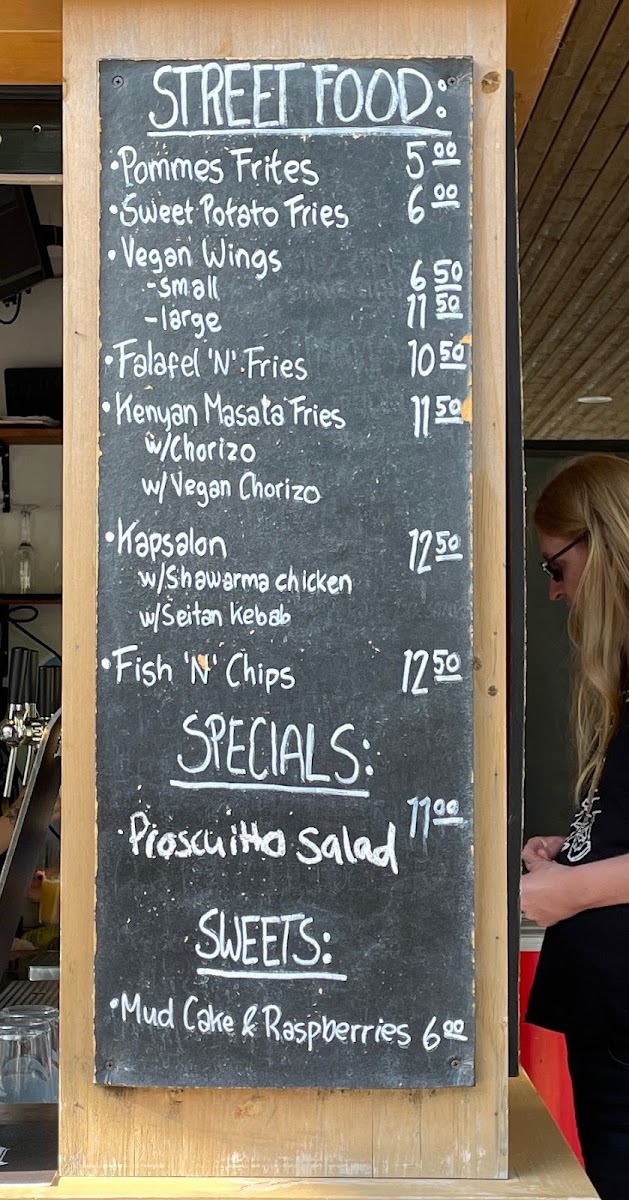 STREET FOOD:
•Pommes Frites 5 00
•Sweet Potato Fries 6 00
•Vegan Wings
-small 6 50
-large 11 50
•Falafel 'N' Fries 10 50
•Kenyan Masala Fries 11 50
w/Chorizo
w/Vegan Chorizo
•Kapsalon 12 50
w/Shawarma chicken
w/Seitan Kebab
•Fish 'N' Chips 12 50
SPECIALS:
•Proscuitto Salad 11 00
SWEETS:
•Mud Cake & Raspberries 6 00